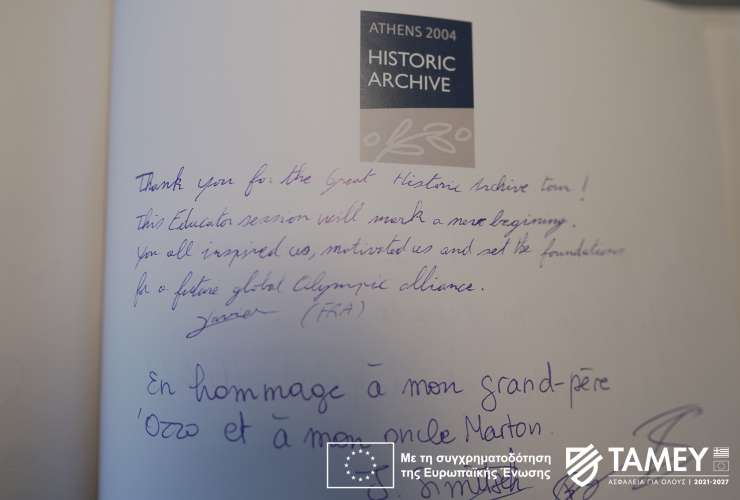 ATHENS 2004
HISTORIC
ARCHIVE
Thank you for the Great Historic Archive tour !
This Educator session will mark a new begining.
You all inspired us, motivated us and set the foundations
for a future global Olympic alliance.
(FRA)
En hommage à mon grand-père
Ozzo et à mon oncle Marton.
Με τη συγχρηματοδότηση
της Ευρωπαϊκής Ένωσης
TAMEY
ΑΣΦΑΛΕΙΑ ΓΙΑ ΟΛΟΥΣ | 2021-2027